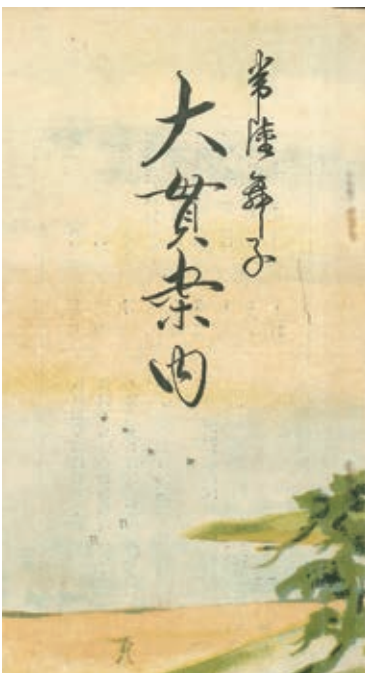 常陸舞子
大貫案内